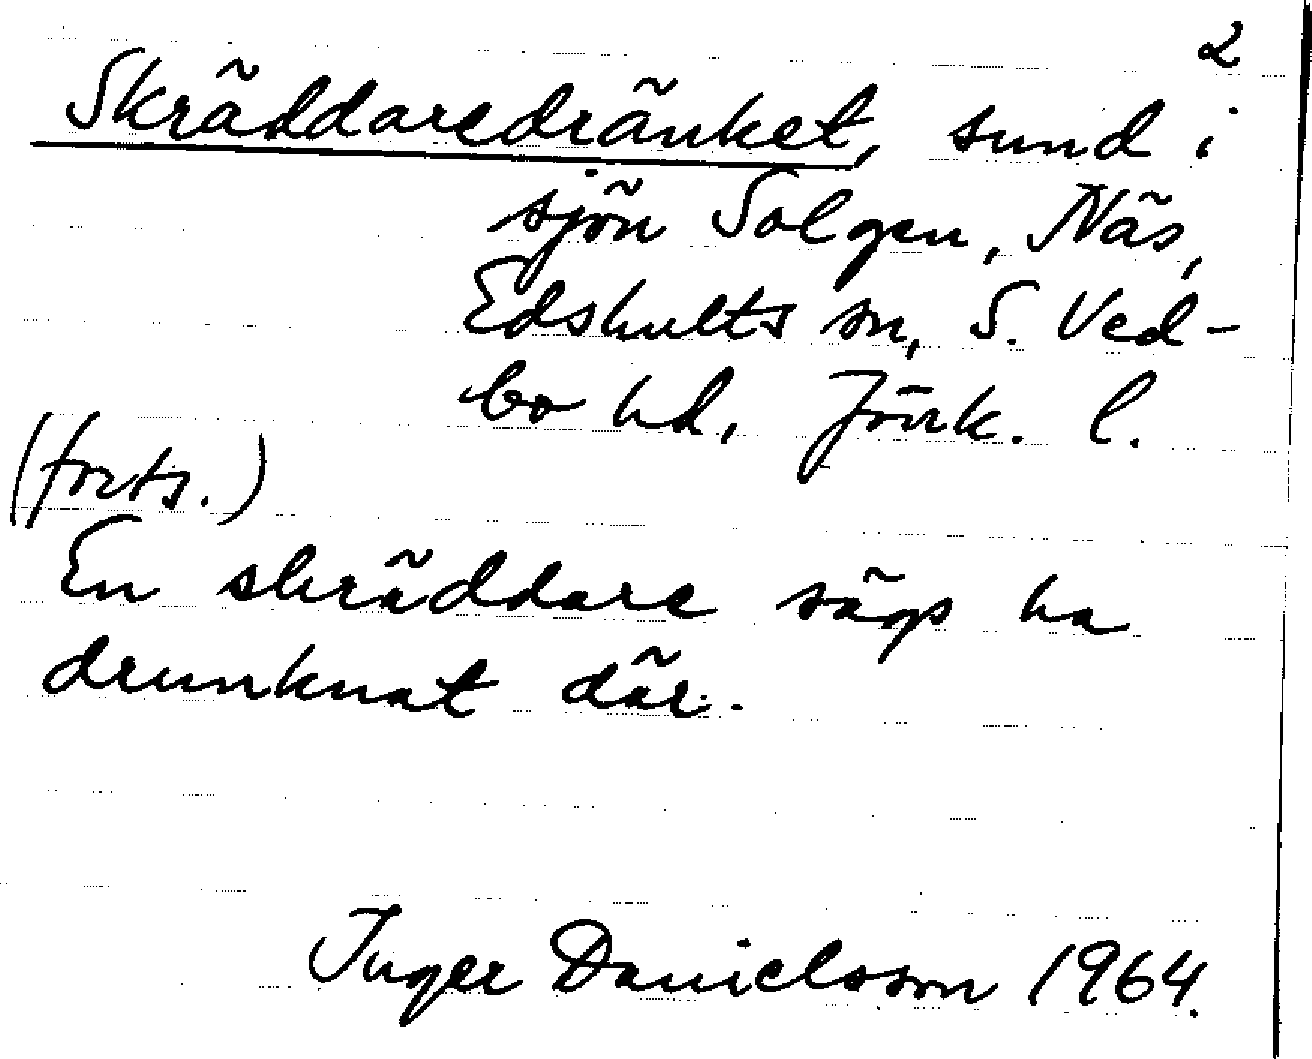 2
Skräddaredränket, sund i
sjön Solgen, Näs,
Edshults sn, S. Ved-
bo hd, Jönk. l.
(forts.)
En skräddare sägs ha
drunknat där.
Inger Danielsson 1964.